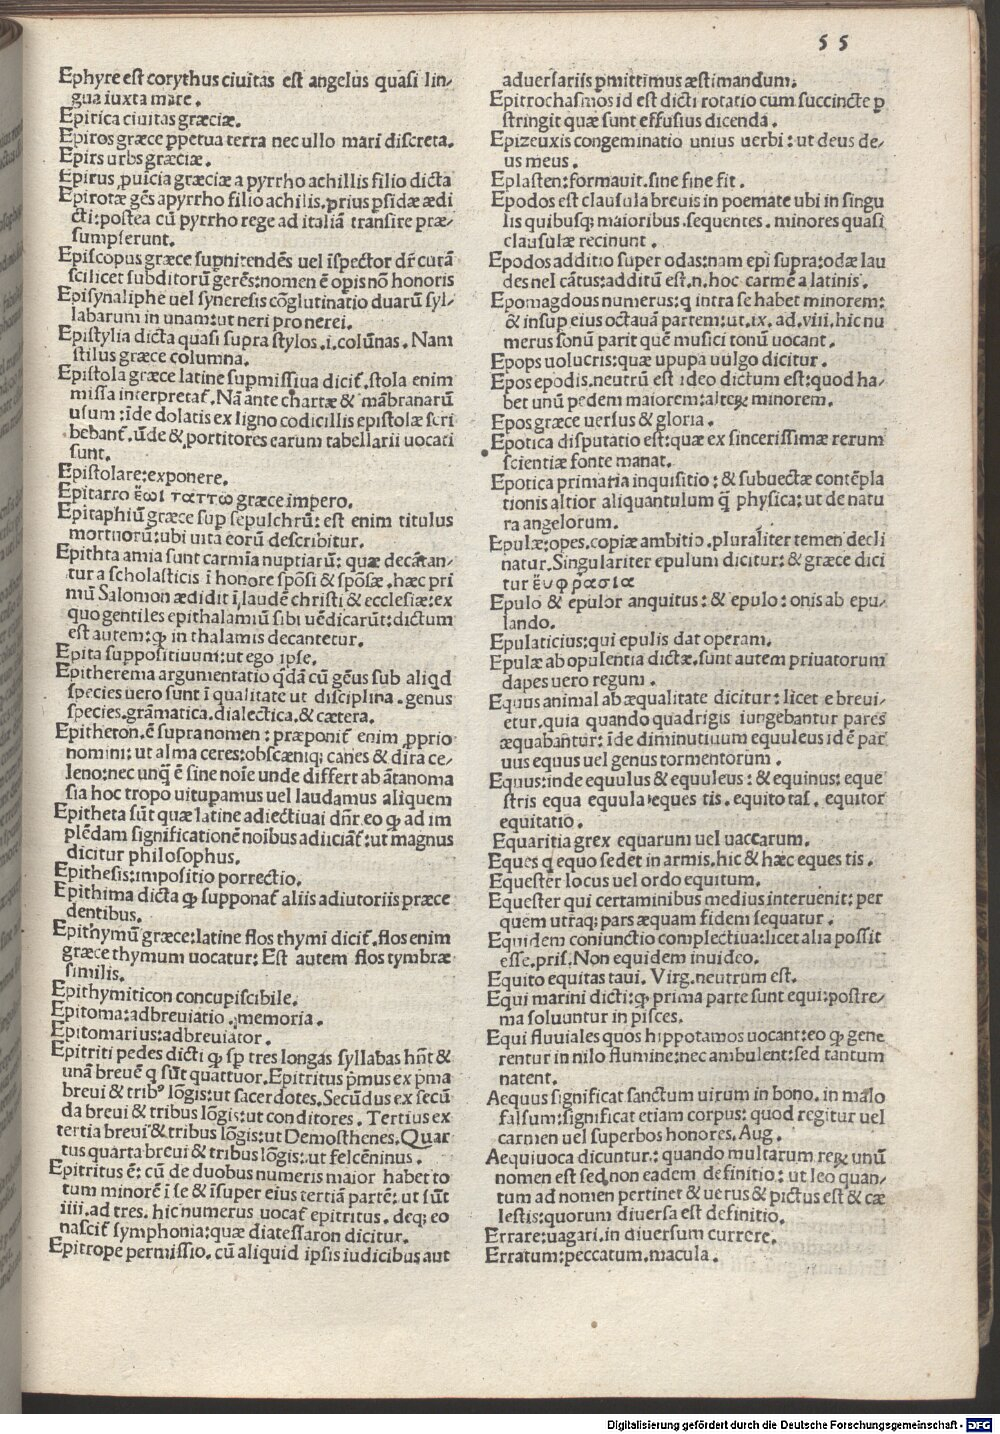 55
Ephyre est corythus ciuitas est angelus quasi lin-
gua iuxta mare.
Epirica ciuitas græciæ.
Epiros græce ꝑpetua terra nec ullo mari discreta.
Epirs urbs græciæ.
Epirus ꝓuicia græciæ a pyrrho achillis filio dicta
Epirotæ gẽs apyrrho filio achilis, prius psidæ ædi
cti: postea cũ pyrrho rege ad italiã transire præ-
sumpserunt.
Episcopus græce supnitendẽs uel ĩspector dr̃ curã
scilicet subditorũ gerẽs: nomen ẽ opis nõ honoris
Episynaliphe uel syneresis cõglutinatio duarũ syl-
labarum in unam: ut neri pro nerei.
Epistylia dicta quasi supra stylos .i. colũnas. Nam
stilus græce columna.
Epistola græce latine supmissiua dicit̃. stola enim
missa interpretat̃. Nã ante chartæ & mãbranarũ
usum: ĩde dolatis ex ligno codicillis epistolæ scri
bebant̃. ũde & portitores earum tabellarii uocati
sunt.
Epistolare: exponere.
Epitarro ἔωι ταττω græce impero.
Epitaphiũ græce sup sepulchrũ: est enim titulus
mortuorũ: ubi uita eorũ describitur.
Epithta amia sunt carmĩa nuptiarũ: quæ decãtan-
tur a scholasticis ĩ honore spõsi & spõsæ. hæc pri
mũ Salomon ædidit ĩ laudẽ christi & ecclesiæ: ex
quo gentiles epithalamiũ sibi uẽdicarũt: dictum
est autem: ꝙ in thalamis decantetur.
Epita suppositiuum: ut ego ipse.
Epitherema argumentatio q̃dã cũ gẽus sub aliqd
species uero sunt ĩ qualitate ut disciplina. genus
species. grãmatica. dialectica. & cætera.
Epitheton. ẽ supra nomen: præponit̃ enim ꝓprio
nomini: ut alma ceres: obscæniq; canes & dira ce-
leno: nec unq̃ ẽ sine noĩe unde differt ab ãtanoma
sia hoc tropo uitupamus uel laudamus aliquem
Epitheta sũt quæ latine adiectiuai dñr. eo ꝙ ad im
plẽdam significationẽ noibus adiiciãt̃: ut magnus
dicitur philosophus.
Epithesis: impositio porrectio.
Epithima dicta ꝙ supponat̃ aliis adiutoriis præce
dentibus.
Epithymũ græce: latine flos thymi dicit̃. flos enim
græce thymum uocatur: Est autem flos tymbræ
similis.
Epithymiticon concupiscibile.
Epitoma: adbreuiatio. memoria.
Epitomarius: adbreuiator.
Epitriti pedes dicti ꝙ sp̃ tres longas syllabas hñt &
unã breuẽ q̃ sũt quattuor. Epitritus p̃mus ex p̃ma
breui & tribꝰ lõgis: ut sacerdotes. Secũdus ex secũ
da breui & tribus lõgis: ut conditores. Tertius ex
tertia breui & tribus lõgis: ut Demosthenes. Quar
tus quarta breui & tribus lõgis: ut felcẽninus.
Epitritus ẽ: cũ de duobus numeris maior habet to
tum minorẽ ĩ se & ĩsuper eius tertiã partẽ: ut sũt
iiii. ad tres. hic numerus uocat̃ epitritus. deq; eo
nascit̃ symphonia: quæ diatessaron dicitur.
Epitrope permissio. cũ aliquid ipsis iudicibus aut
aduersariis ꝑmittimus æstimandum.
Epitrochasmos id est dicti rotatio cum succincte ꝑ
stringit quæ sunt effusius dicenda.
Epizeuxis congeminatio unius uerbi: ut deus de-
us meus.
Eplasten: formauit. sine fine fit.
Epodos est clausula breuis in poemate ubi in singu
lis quibusq; maioribus. sequentes. minores quasi
clausulæ recinunt.
Epodos additio super odas: nam epi supra: odæ lau
des nel cãtus: additũ est. n. hoc carmẽ a latinis.
Epomagdous numerus: q intra se habet minorem:
& insup eius octauã partem: ut. ix. ad. viii. hic nu
merus sonũ parit quẽ musici tonũ uocant.
Epops uolucris: quæ upupa uulgo dicitur.
Epos epodis. neutrũ est ideo dictum est: quod ha-
bet unũ pedem maiorem: alteꝝ minorem.
Epos græce uersus & gloria.
Epotica disputatio est: quæ ex sincerissimæ rerum
scientiæ fonte manat.
Epotica primaria inquisitio: & subuectæ contẽpla
tionis altior aliquantulum q̃ physica: ut de natu
ra angelorum.
Epulæ: opes. copiæ ambitio. pluraliter temen decli
natur. Singulariter epulum dicitur: & græce dici
tur ἔυφρασια
Epulo & epulor anquitus: & epulo: onis ab epu-
lando.
Epulaticius: qui epulis dat operam.
Epulæ ab opulentia dictæ. sunt autem priuatorum
dapes uero regum.
Equus animal ab æqualitate dicitur: licet e breui-
etur. quia quando quadrigis iungebantur pares
æquabantur: ĩde diminutiuum equuleus id ẽ par
uus equus uel genus tormentorum.
Equus: inde equulus & equuleus: & equinus: eque
stris equa equula: eques tis. equito tas. equitor
equitatio.
Equaritia grex equarum uel uaccarum.
Eques q equo sedet in armis. hic & hæc eques tis.
Equester locus uel ordo equitum.
Equester qui certaminibus medius interuenit: per
quem utraq; pars æquam fidem sequatur.
Equidem coniunctio complectiua: licet alia possit
esse. pris. Non equidem inuideo.
Equito equitas taui. Virg. neutrum est.
Equi marini dicti: ꝙ prima parte sunt equi: postre-
ma soluuntur in pisces.
Equi fluuiales quos hippotamos uocant: eo ꝙ gene
rentur in nilo flumine: nec ambulent: sed tantum
natent.
Aequus significat sanctum uirum in bono. in malo
falsum: significat etiam corpus: quod regitur uel
carmen uel superbos honores. Aug.
Aequiuoca dicuntur: quando multarum reꝝ unũ
nomen est sed non eadem definitio: ut leo quan-
tum ad nomen pertinet & uerus & pictus est & cæ
lestis: quorum diuersa est definitio.
Errare: uagari. in diuersum currere.
Erratum: peccatum. macula.
Digitalisierung gefördert durch die Deutsche Forschungsgemeinschaft - DFG